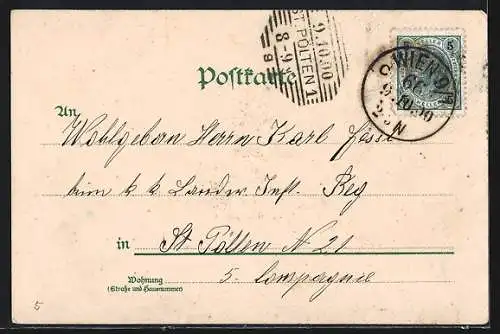 9.10.00
ST. PÖLTEN 1
8-9
Postkarte
5
WIEN 9/
66
9.10.00
2 N
An
Wohlgebor Herrn Karl
beim k k Landw Inft. Reg
in St Pölten N 21
5. Compagnie
Wohnung
(Straße und Hausnummer)
5